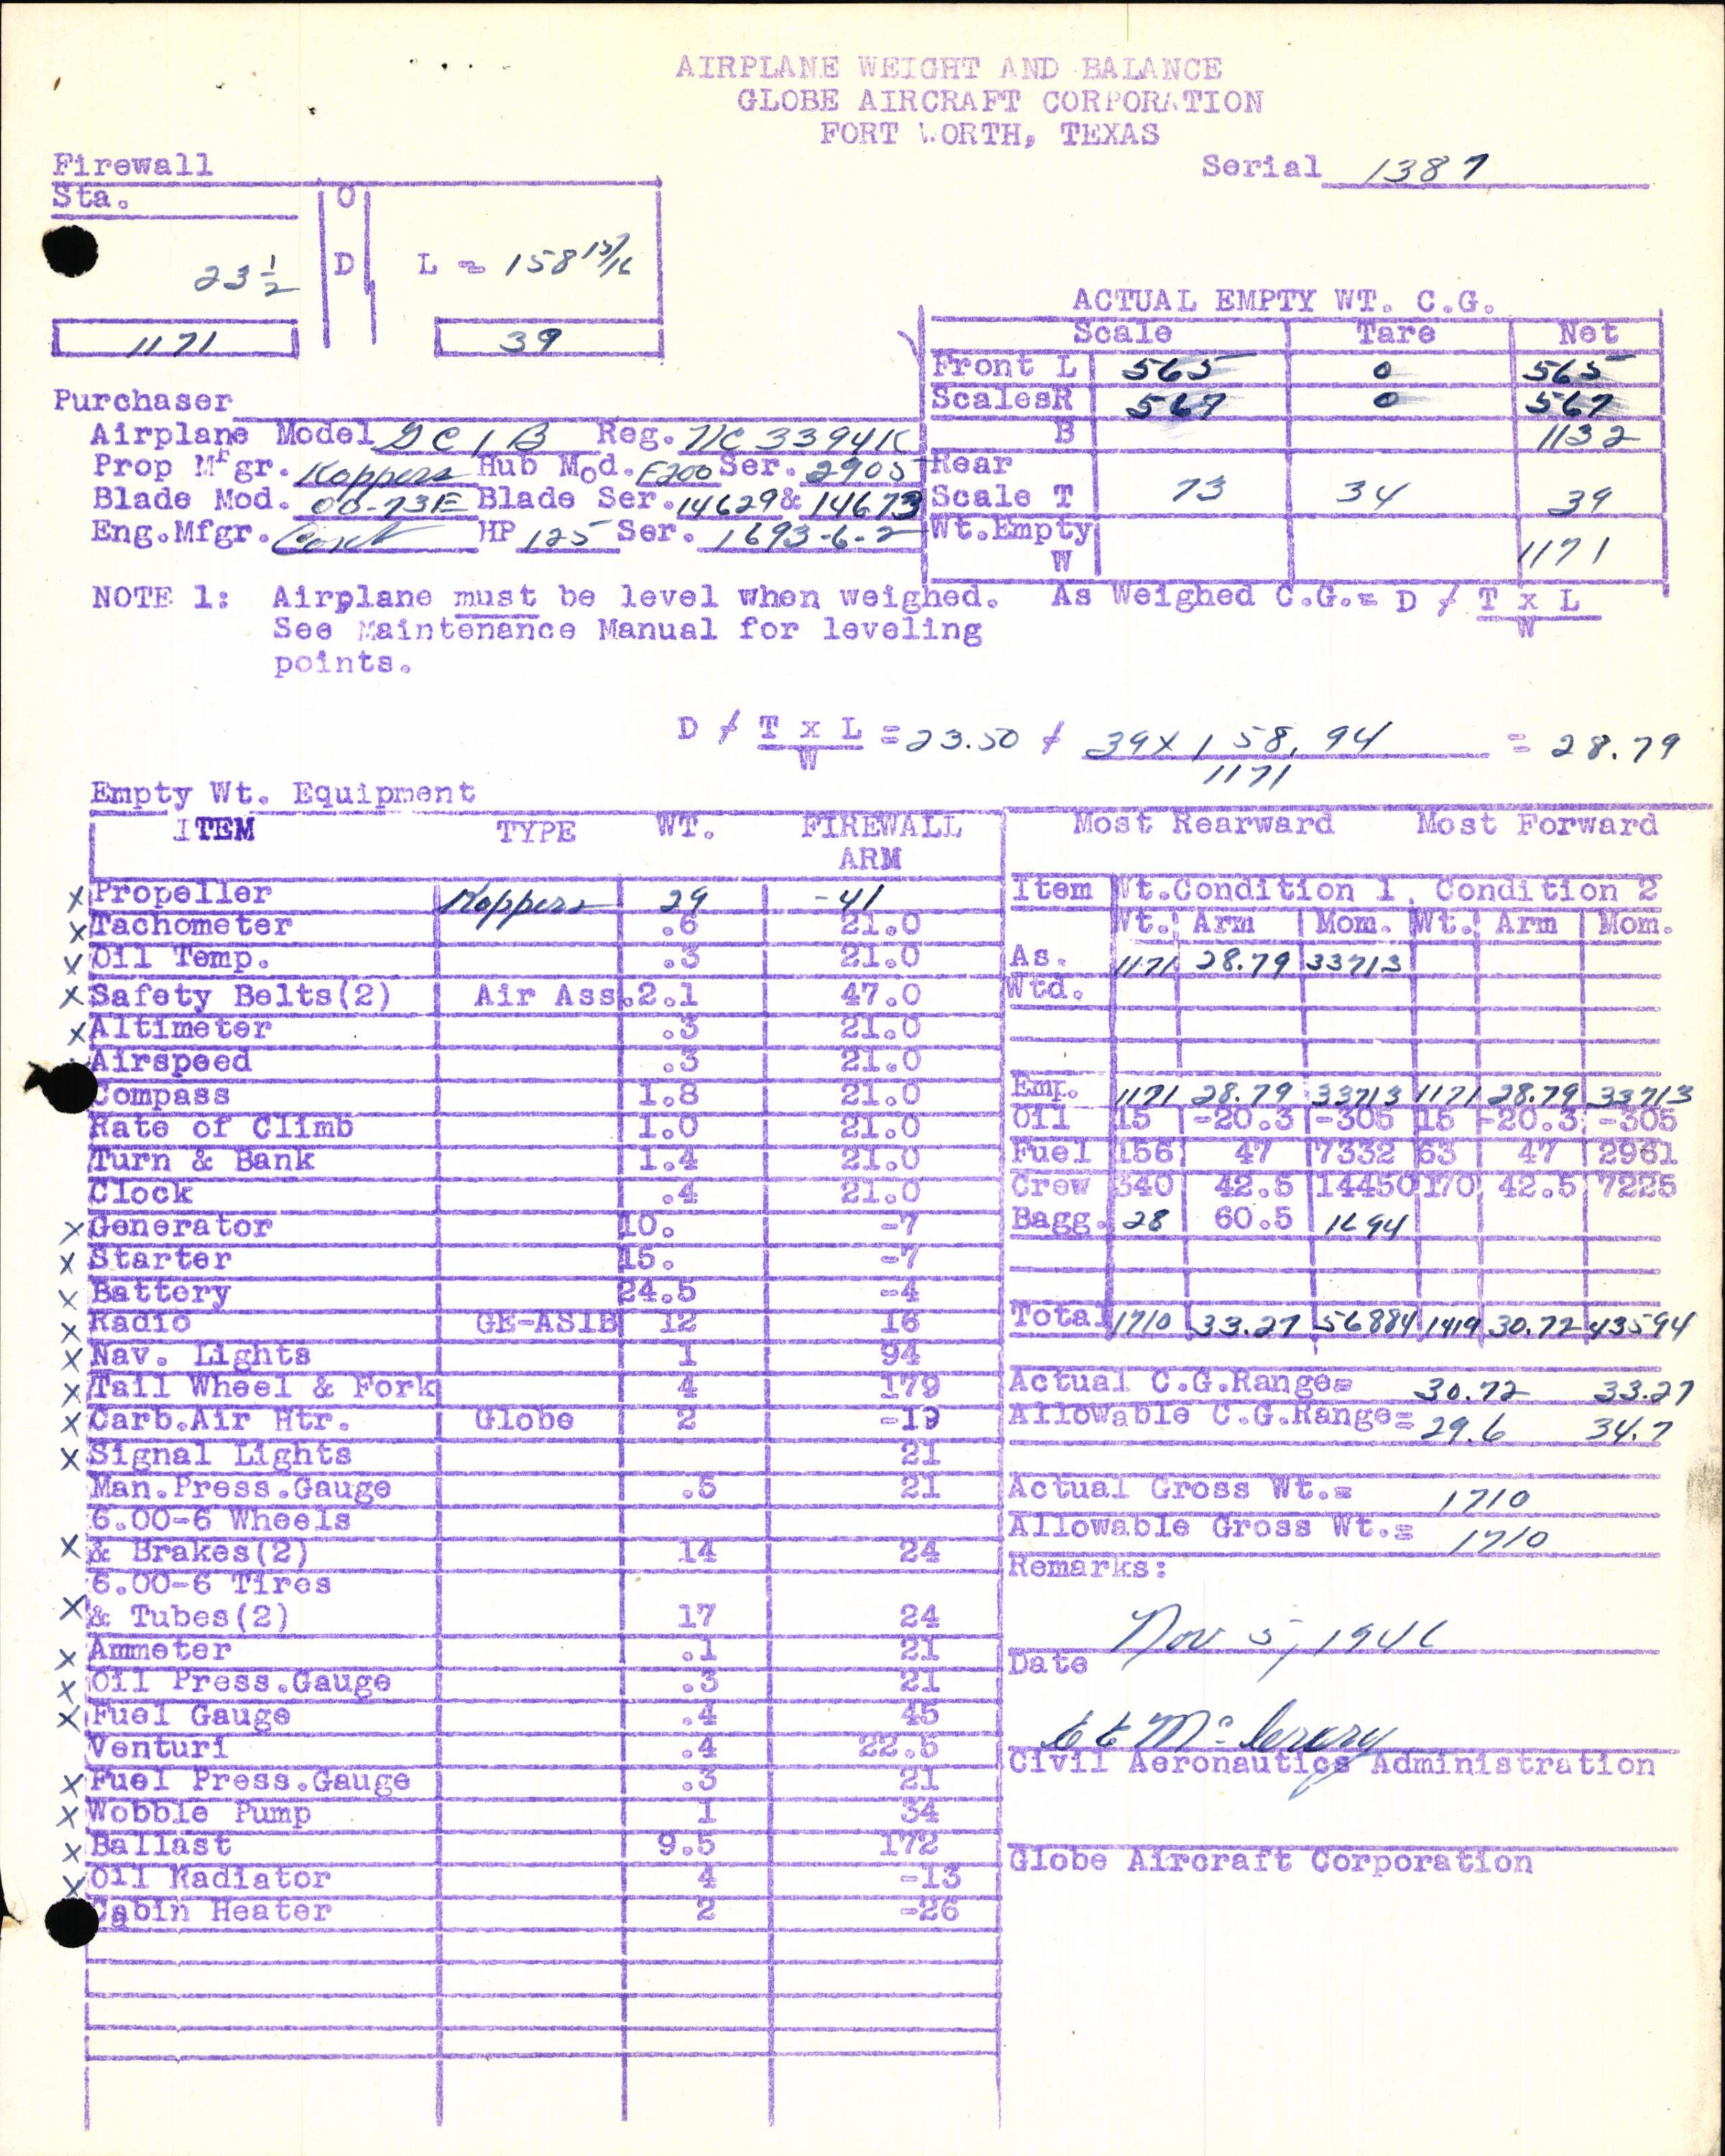 AIRPLANE WEIGHT AND BALANCE
GLOBE AIRCRAFT CORPORATION
FORT WORTH, TEXAS
Serial 1387
Firewall
Sta.
O
23 1/2 D L = 158 15/16
1171 39
ACTUAL EMPTY WT. C.G.
Scale Tare Net
Front L 565 0 565
ScalesR 567 0 567
B 1132
Rear
Scale T 73 34 39
Wt.Empty
W 1171
Purchaser
Airplane Model GC1B Reg. NC 3394K
Prop Mfgr. Koppers Hub Mod. F200 Ser. 2905
Blade Mod. 00-73E Blade Ser. 14629 & 14673
Eng.Mfgr. Cont HP 125 Ser. 1693-6-2
NOTE 1: Airplane must be level when weighed. As Weighed C.G.= D / T x L
W
See Maintenance Manual for leveling
points.
D / T x L = 23.50 / 39 x 158.94 = 28.79
W 1171
Empty Wt. Equipment
ITEM TYPE WT. FIREWALL
ARM
X Propeller Koppers 29 -41
X Tachometer .6 21.0
X Oil Temp. .3 21.0
X Safety Belts(2) Air Ass. 2.1 47.0
X Altimeter .3 21.0
Airspeed .3 21.0
Compass 1.8 21.0
Rate of Climb 1.0 21.0
Turn & Bank 1.4 21.0
Clock .4 21.0
X Generator 10. -7
X Starter 15. -7
X Battery 24.5 -4
X Radio GE-AS1B 12 16
X Nav. Lights 1 94
X Tail Wheel & Fork 4 179
X Carb.Air Htr. Globe 2 -19
X Signal Lights 21
Man.Press.Gauge .5 21
6.00-6 Wheels
X & Brakes(2) 14 24
6.00-6 Tires
X & Tubes(2) 17 24
X Ammeter .1 21
X Oil Press.Gauge .3 21
X Fuel Gauge .4 45
Venturi .4 22.5
X Fuel Press.Gauge .3 21
X Wobble Pump 1 34
X Ballast 9.5 172
X Oil Radiator 4 -13
Cabin Heater 2 -26
Most Rearward Most Forward
Item Wt.Condition 1. Condition 2
Wt. Arm Mom. Wt. Arm Mom.
As. 1171 28.79 33713
Wtd.
Emp. 1171 28.79 33713 1171 28.79 33713
Oil 15 -20.3 -305 15 -20.3 -305
Fuel 156 47 7332 63 47 2961
Crew 340 42.5 14450 170 42.5 7225
Bagg. 28 60.5 1694
Total 1710 33.27 56884 1419 30.72 43594
Actual C.G.Range= 30.72 33.27
Allowable C.G.Range= 29.6 34.7
Actual Gross Wt.= 1710
Allowable Gross Wt.= 1710
Remarks:
Nov 5, 1946
Date
Civil Aeronautics Administration
Globe Aircraft Corporation